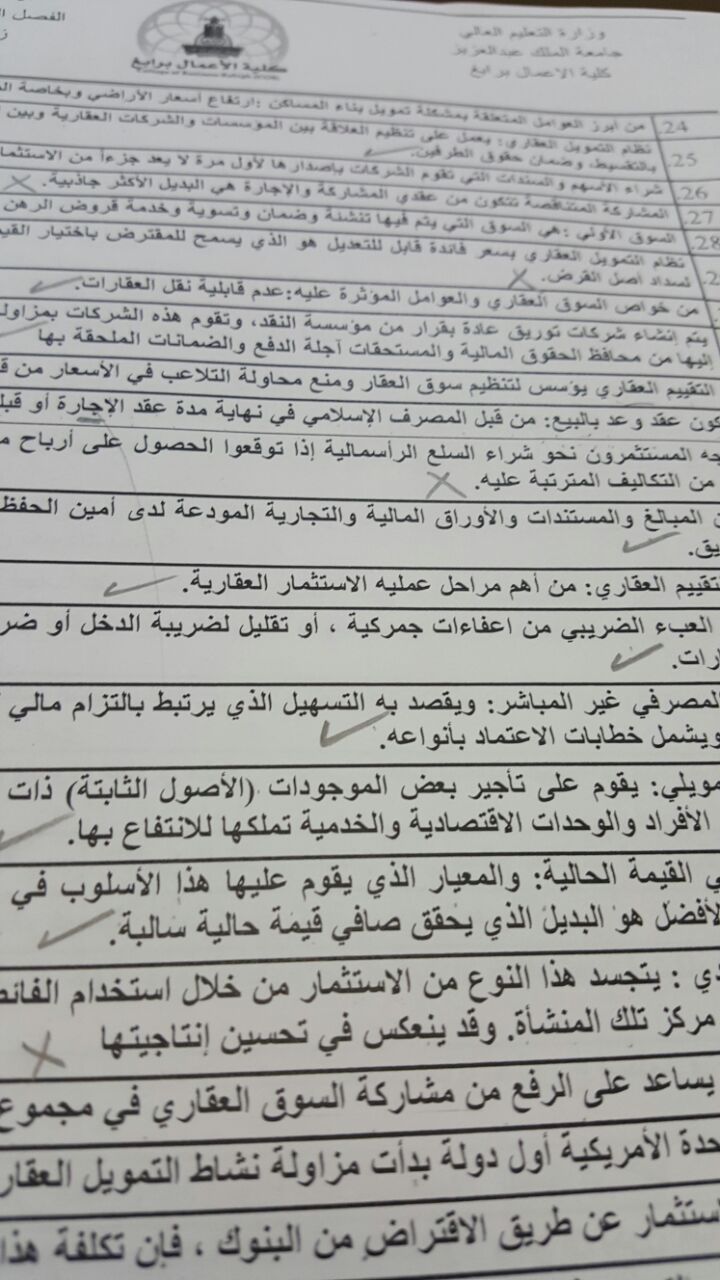 وزارة التعليم العالي
جامعة الملك عبدالعزيز
كلية الاعمال برابغ
كلية الأعمال برابغ
الفصل
24. من أبرز العوامل المتعلقة بمشكلة تمويل بناء المساكن :ارتفاع أسعار الأراضي وبخاصة
25. نظام التمويل العقاري: يعمل على تنظيم العلاقة بين المؤسسات والشركات العقارية وبين
بالتقسيط، وضمان حقوق الطرفين.
26. شراء الأسهم والسندات التي تقوم الشركات بإصدار ها لأول مرة لا يعد جزءاً من الاستثما
27. المشاركة المتناقصة تتكون من عقدي المشاركة والإجارة هي البديل الأكثر جاذبية.
28. السوق الأولي :هي السوق التي يتم فيها تنشئة وضمان وتسوية وخدمة قروض الرهن
نظام التمويل العقاري بسعر فائدة قابل للتعديل هو الذي يسمح للمقترض باختيار القي
لسداد أصل القرض.
من خواص السوق العقاري والعوامل المؤثرة عليه:عدم قابلية نقل العقارات.
يتم إنشاء شركات توريق عادة بقرار من مؤسسة النقد، وتقوم هذه الشركات بمزاول
إليها من محافظ الحقوق المالية والمستحقات آجلة الدفع والضمانات الملحقة بها
التقييم العقاري يؤسس لتنظيم سوق العقار ومنع محاولة التلاعب في الأسعار من ق
كون عقد وعد بالبيع: من قبل المصرف الإسلامي في نهاية مدة عقد الإجارة أو قبل
جه المستثمرون نحو شراء السلع الرأسمالية إذا توقعوا الحصول على أرباح م
من التكاليف المترتبة عليه.
ن المبالغ والمستندات والأوراق المالية والتجارية المودعة لدى أمين الحفظ
يق.
تقييم العقاري: من أهم مراحل عمليه الاستثمار العقارية.
العبء الضريبي من اعفاءات جمركية ، أو تقليل لضريبة الدخل أو ضر
ارات.
لمصرفي غير المباشر: ويقصد به التسهيل الذي يرتبط بالتزام مالي
ويشمل خطابات الاعتماد بأنواعه.
مويلي: يقوم على تأجير بعض الموجودات (الأصول الثابتة) ذات
الأفراد والوحدات الاقتصادية والخدمية تملكها للانتفاع بها.
ي القيمة الحالية: والمعيار الذي يقوم عليها هذا الأسلوب في
لأفضل هو البديل الذي يحقق صافي قيمة حالية سالبة.
دي : يتجسد هذا النوع من الاستثمار من خلال استخدام الفائض
مركز تلك المنشأة. وقد ينعكس في تحسين إنتاجيتها
يساعد على الرفع من مشاركة السوق العقاري في مجموع
حدة الأمريكية أول دولة بدأت مزاولة نشاط التمويل العقار
ستثمار عن طريق الاقتراض من البنوك ، فإن تكلفة هذا